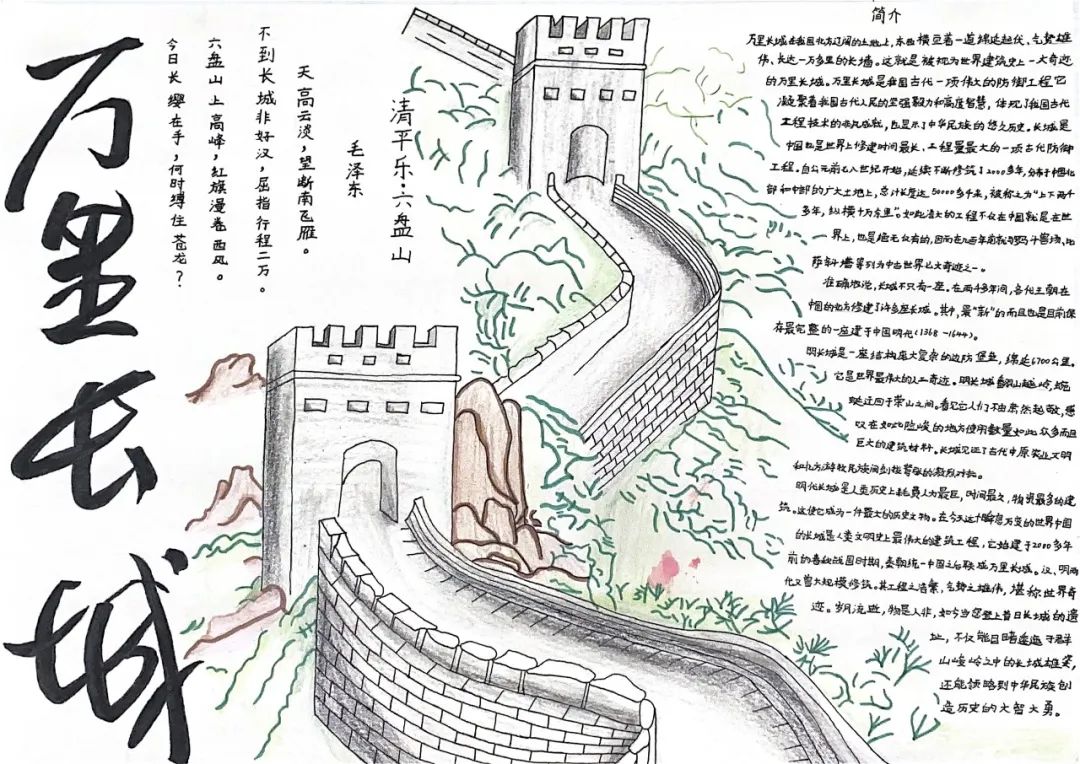 万里长城
清平乐·六盘山
毛泽东
天高云淡,望断南飞雁。
不到长城非好汉,屈指行程二万。
六盘山上高峰,红旗漫卷西风。
今日长缨在手,何时缚住苍龙?
简介
万里长城在我国北方辽阔的土地上,东西横亘着一道绵延起伏、气势雄
伟、长达一万多里的长墙。这就是被视为世界建筑史上一大奇迹
的万里长城。万里长城是我国古代一项伟大的防御工程它
凝聚着我国古代人民的坚强毅力和高度智慧,体现了我国古代
工程技术的非凡成就,也显示了中华民族的悠久历史。长城是
中国也是世界上修建时间最长、工程量最大的一项古代防御
工程。自公元前七八世纪开始,延续不断修筑了2000多年,分布于中国北
部和中部的广大土地上,总计长度达50000多千米,被称之为"上下两千
多年,纵横十万余里"。如此浩大的工程不仅在中国就是在世
界上,也是绝无仅有的,因而在几百年前就与罗马斗兽场、比
萨斜塔等列为中古世界七大奇迹之一。
准确地说,长城不只有一座。在两千多年间,各代王朝在
中国的北方修建了许多座长城。其中,最"新"的而且也是目前保
存最完整的一座建于中国明代(1368-1644)。
明长城是一座结构庞大复杂的边防堡垒,绵延6700公里。
它是世界最伟大的人工奇迹。明长城翻山越岭,蜿
蜒迂回于崇山之间。看见它人们不由肃然起敬,感
叹在如此险峻的地方使用数量如此众多而且
巨大的建筑材料。长城见证了古代中原农业文明
和北方游牧民族间剑拔弩张的激烈对抗。
明代长城是人类历史上耗费人力最巨,时间最久,物资最多的建
筑。这使它成为一件最大的历史文物。在今天这个瞬息万变的世界中国
的长城是人类文明史上最伟大的建筑工程,它始建于2000多年
前的春秋战国时期,秦朝统一中国之后联成万里长城。汉、明两
代又曾大规模修筑。其工程之浩繁,气势之雄伟,堪称世界奇
迹。岁月流逝,物是人非,如今当您登上昔日长城的遗
址,不仅能目睹逶迤于群
山峻岭之中的长城雄姿,
还能领略到中华民族创
造历史的大智大勇。